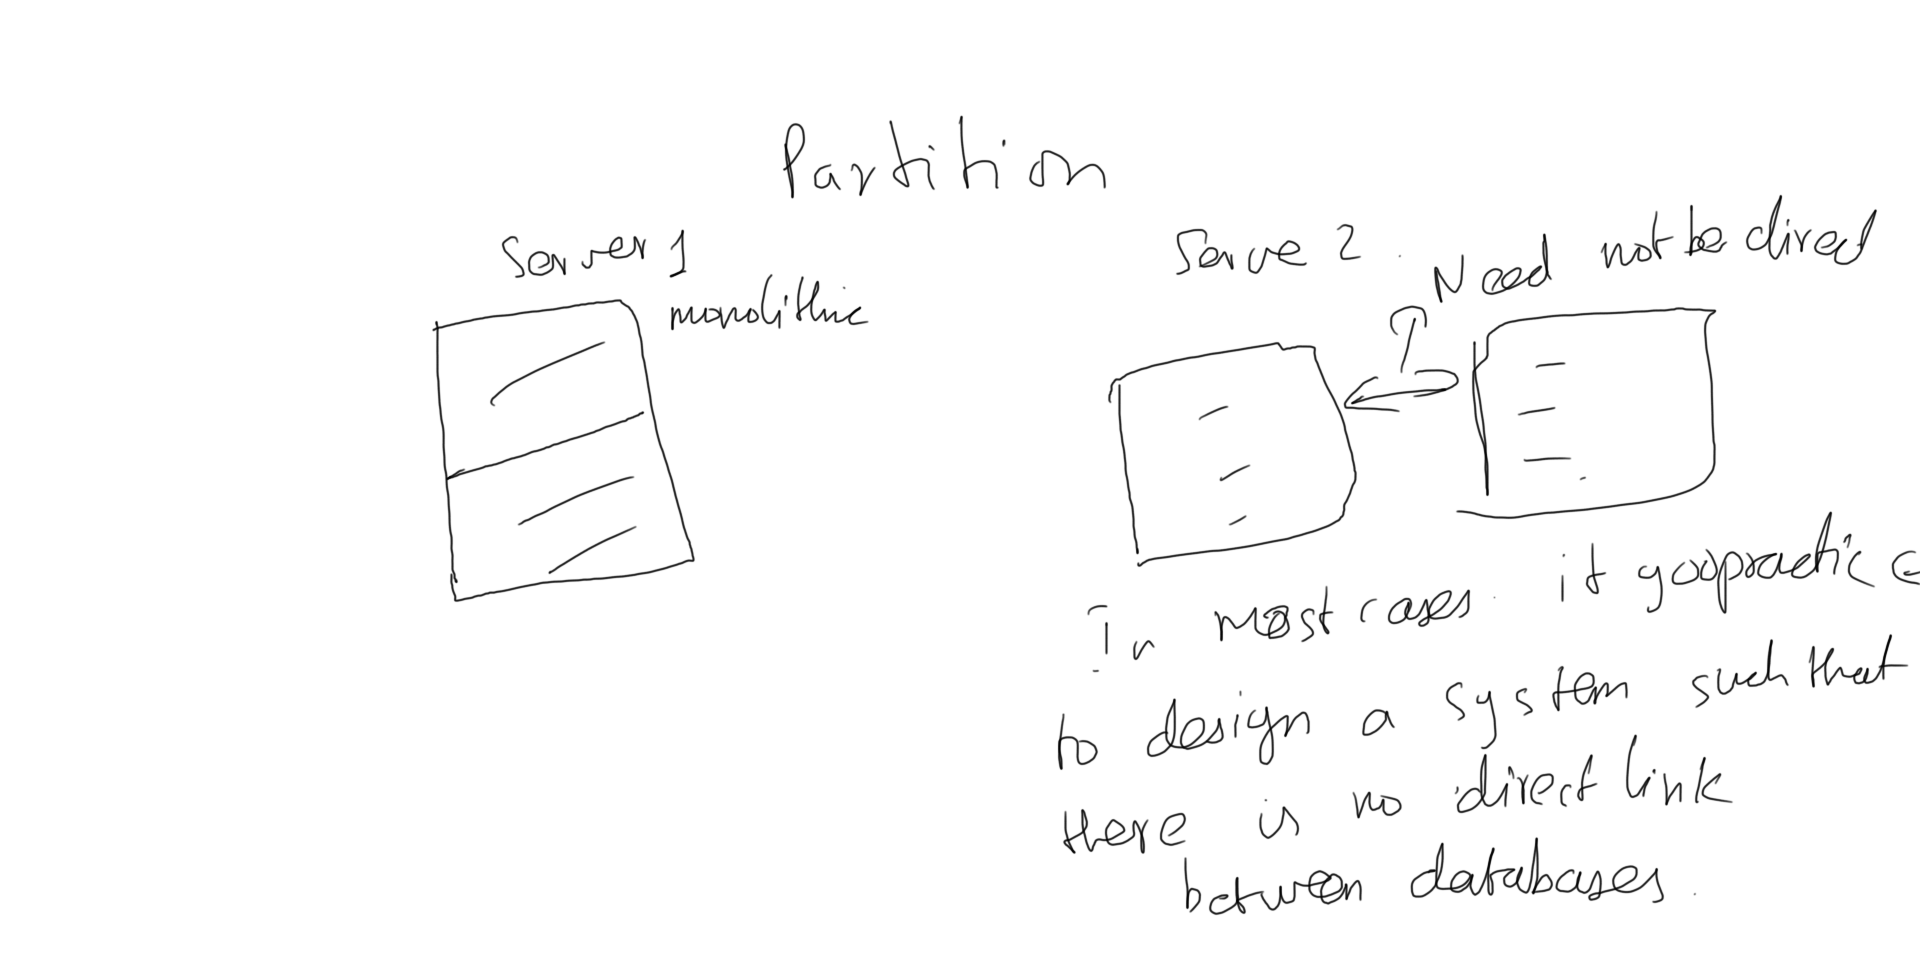 Partition
Server 1
monolithic
Serve 2
Need not be direct
In most cases it goopractic e
to design a system such that
there is no direct link
between databases.